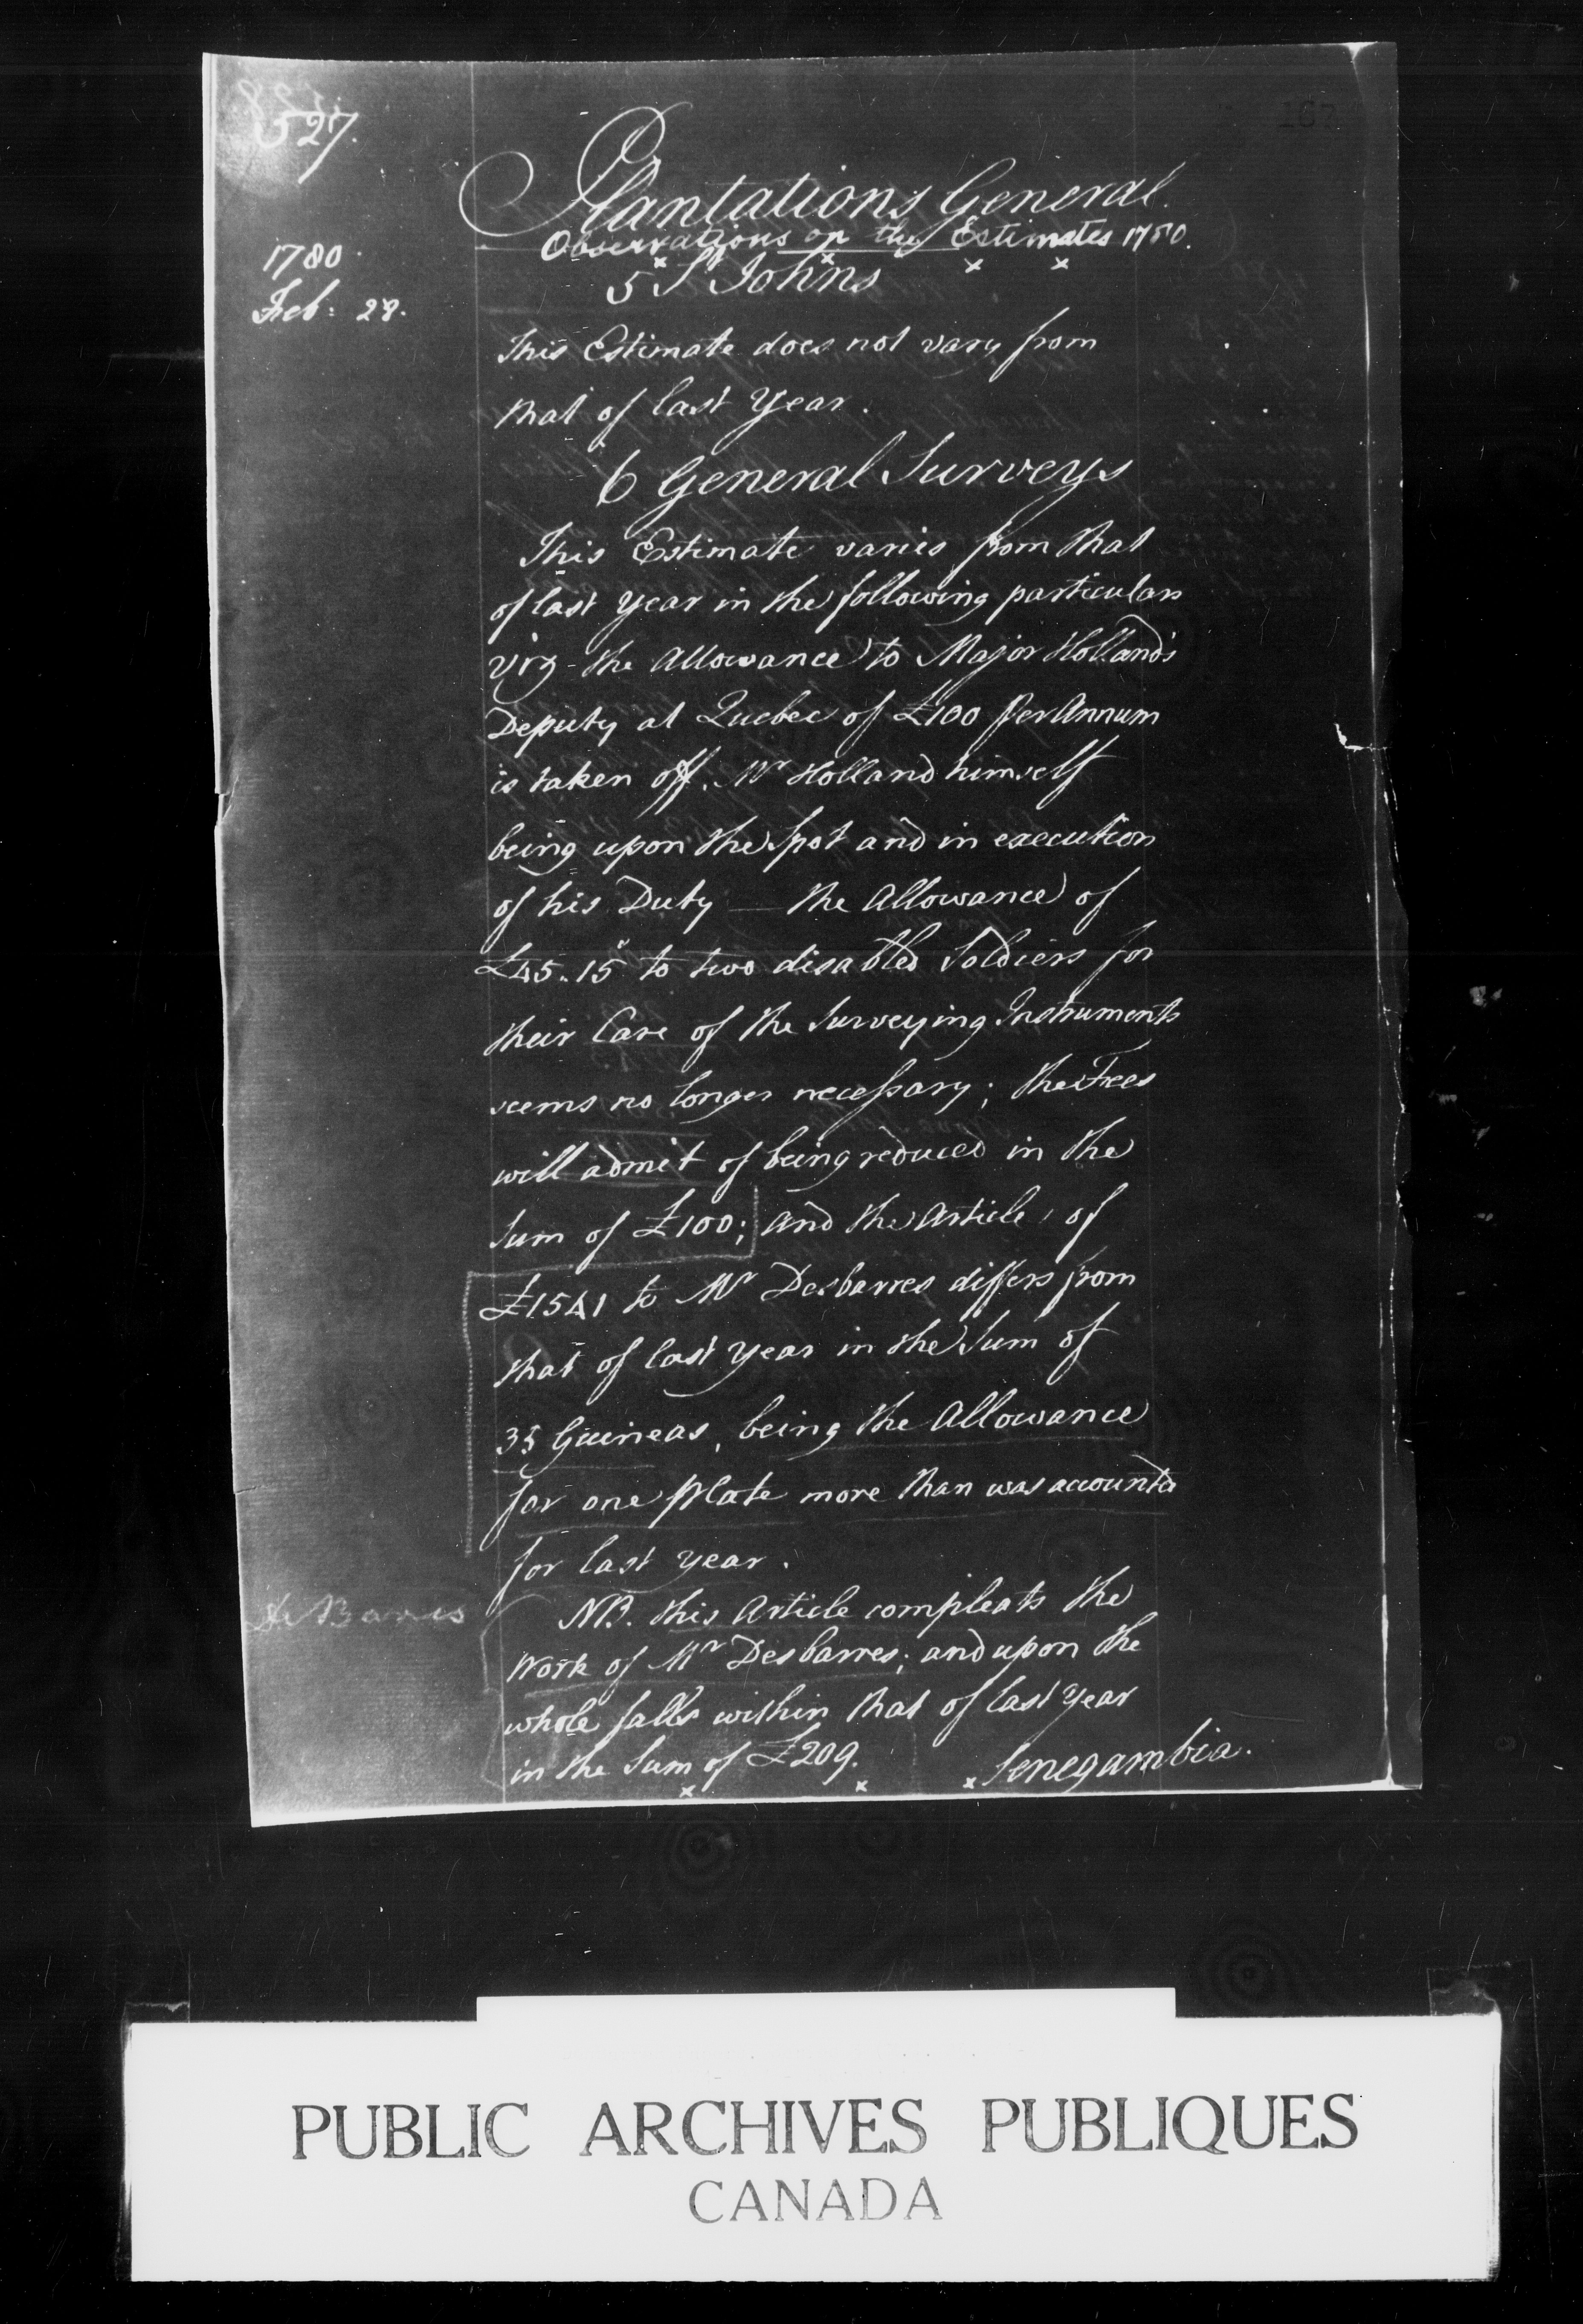 527.
187
Plantations General.
Observations on the Estimates 1780.
1780.
Feb: 28.
5 St Johns
This Estimate does not vary from
that of last Year.
6 General Surveys
This Estimate varies from that
of last year in the following particulars
vizt the Allowance to Major Holland's
Deputy at Quebec of £100 per Annum
is taken off. Mr Holland himself
being upon the Spot and in execution
of his Duty — the Allowance of
£45.15 to two disabled Soldiers for
their Care of the Surveying Instruments
seems no longer necessary; the Fees
will admit of being reduced in the
Sum of £100; and the Article of
£1541 to Mr Desbarres differs from
that of last year in the Sum of
35 Guineas, being the Allowance
for one plate more than was accounted
for last year.
NB. this Article compleats the
Work of Mr Desbarres; and upon the
whole falls within that of last year
in the Sum of £209.
Senegambia.
PUBLIC ARCHIVES PUBLIQUES
CANADA